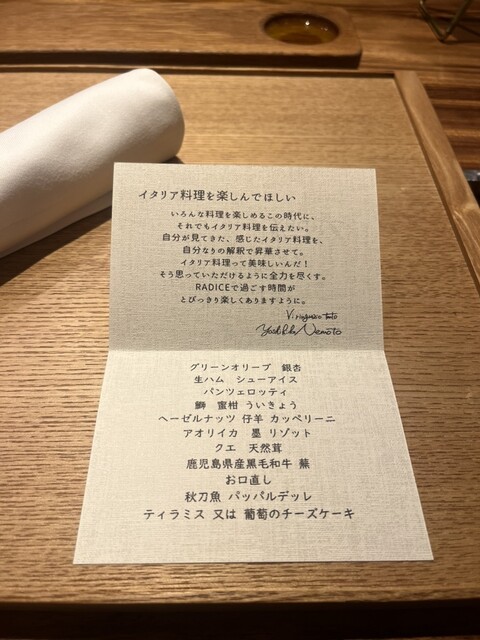 イタリア料理を楽しんでほしい
いろんな料理を楽しめるこの時代に、
それでもイタリア料理を伝えたい。
自分が見てきた、感じたイタリア料理を、
自分なりの解釈で昇華させて。
イタリア料理って美味しいんだ！
そう思っていただけるように全力を尽くす。
RADICEで過ごす時間が
とびっきり楽しくありますように。
Nemoto
グリーンオリーブ 銀杏
生ハム シューアイス
パンツェロッティ
鰤 蜜柑 ういきょう
ヘーゼルナッツ 仔羊 カッペリーニ
アオリイカ 墨 リゾット
クエ 天然茸
鹿児島県産黒毛和牛 蕪
お口直し
秋刀魚 パッパルデッレ
ティラミス 又は 葡萄のチーズケーキ